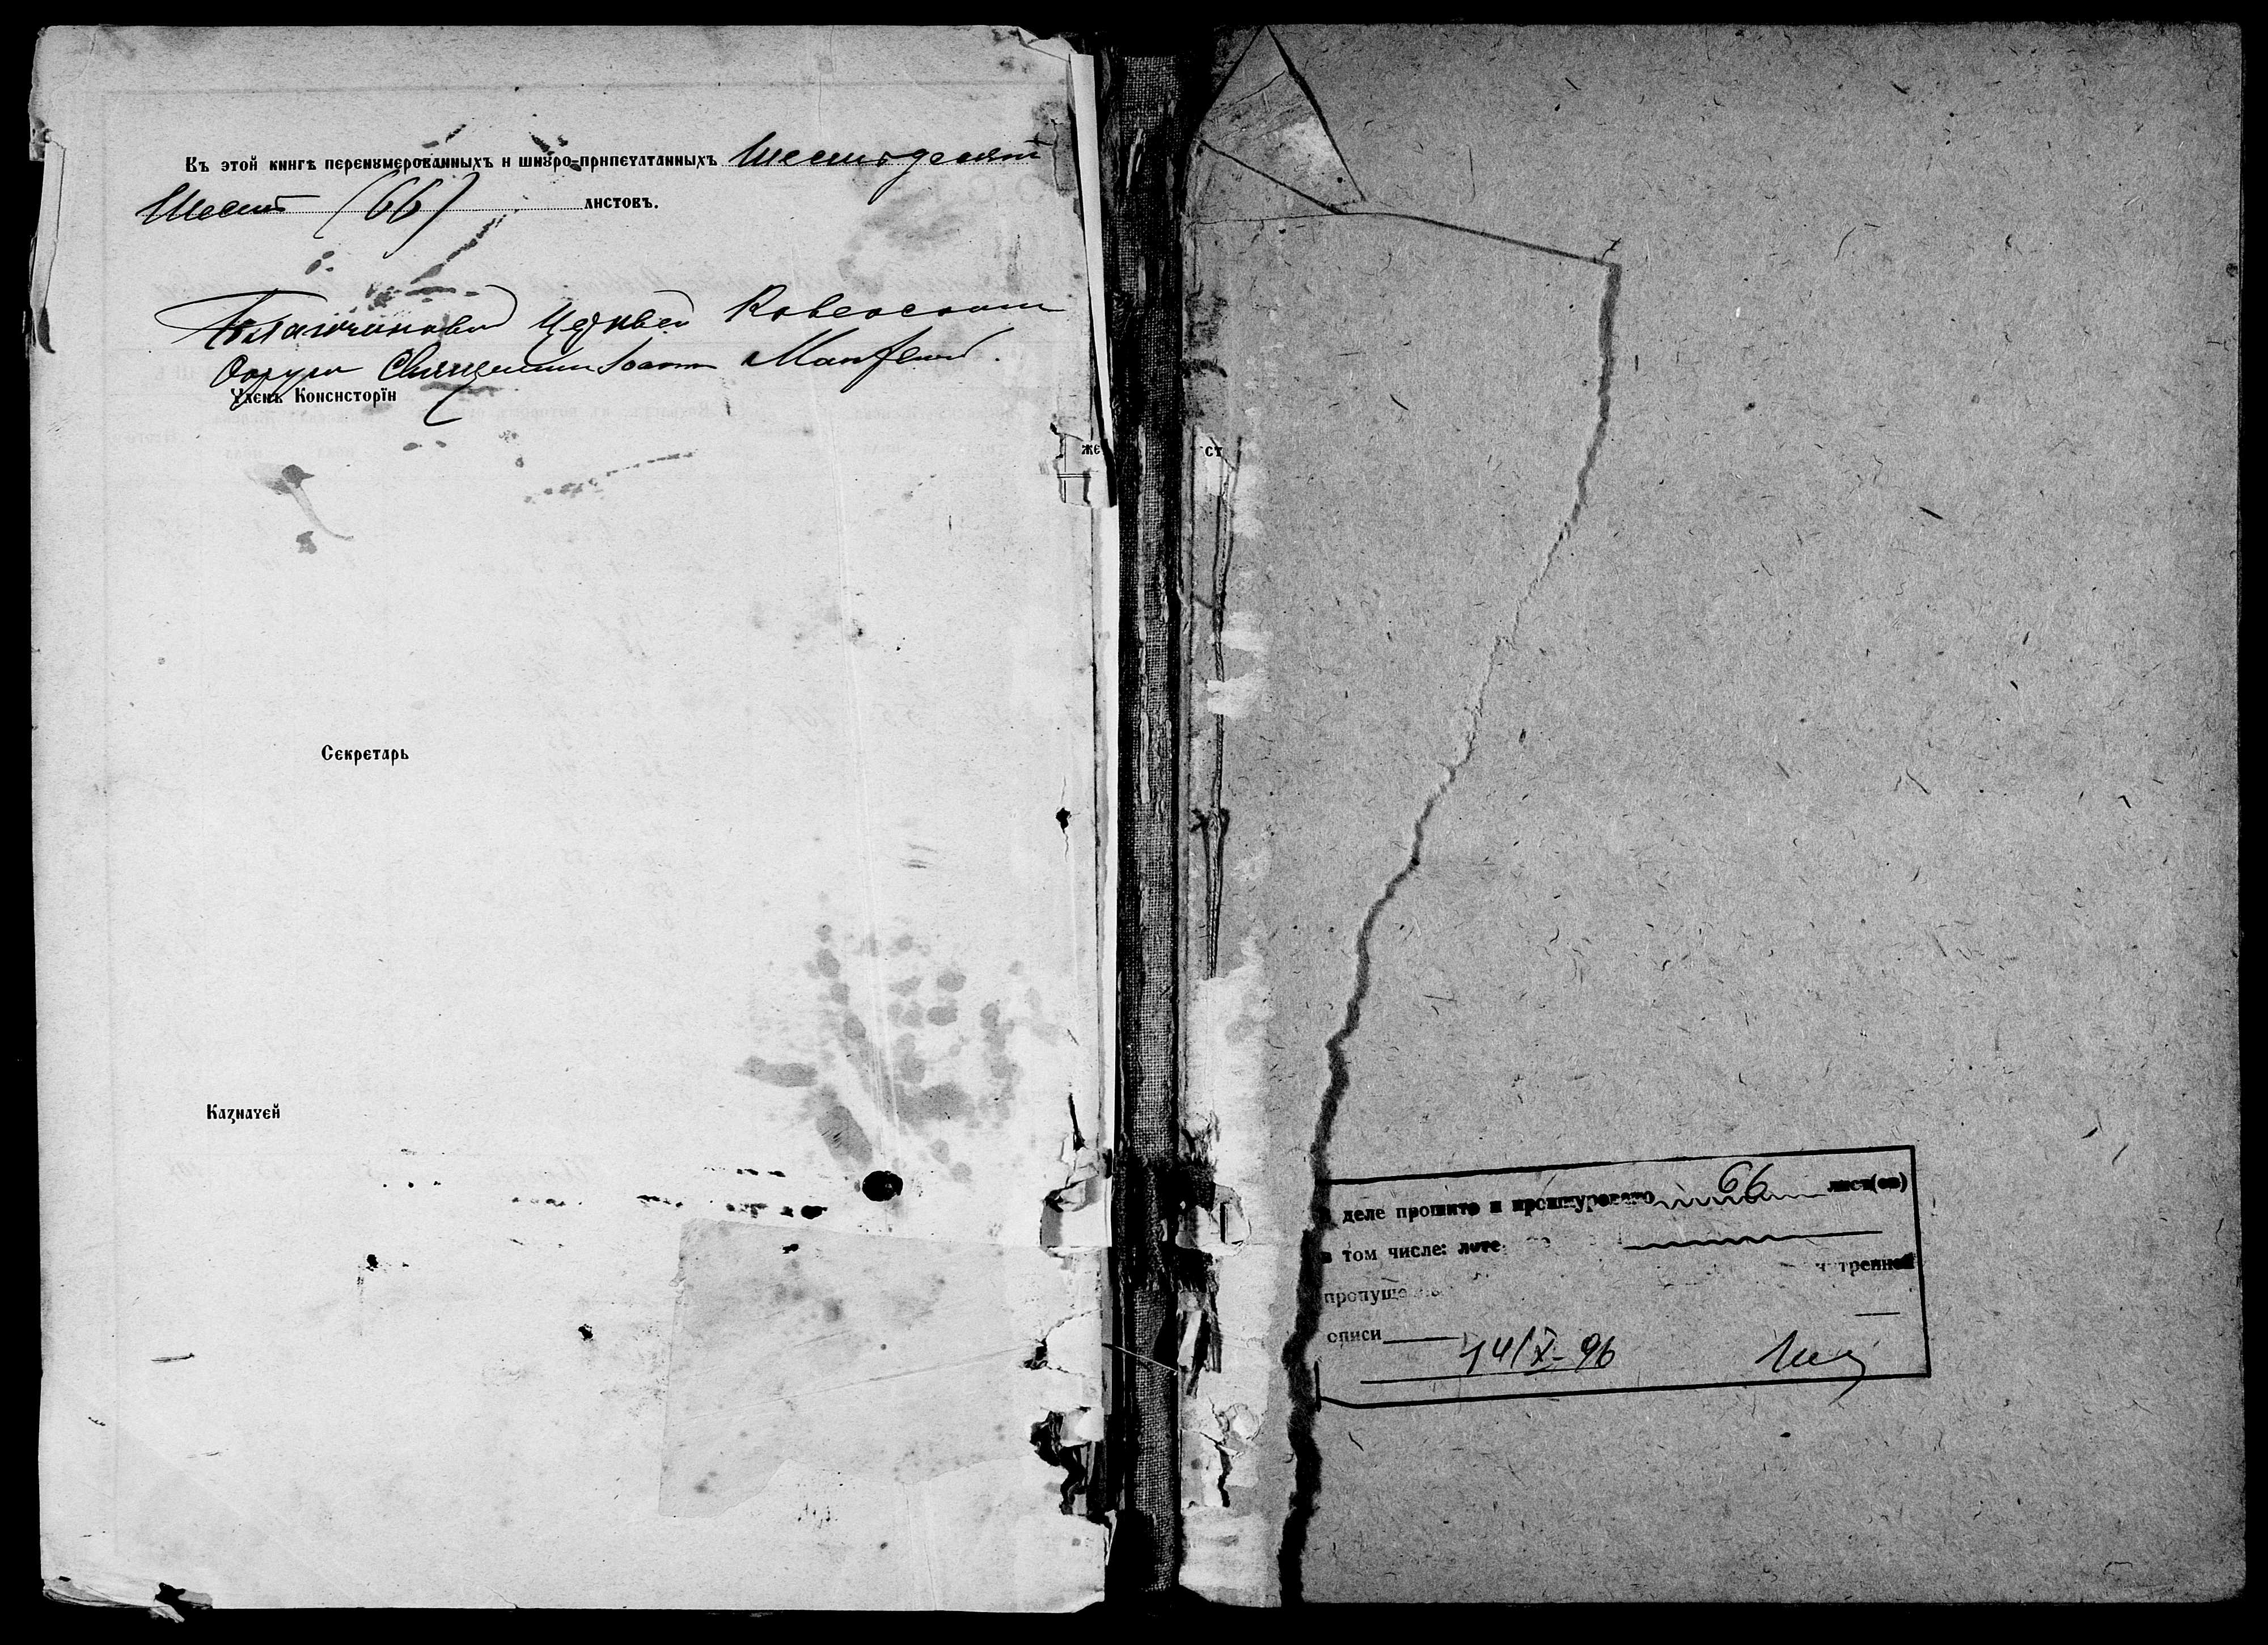 Въ этой книгѣ перенумерованныхъ и шнуро-припечатанныхъ Шестьдесят
Шесть (66) листовъ.
Благочинный Церквей
Округа Священник Иоанн
Членъ Консисторіи
же
ст
Секретарь
Казначей
В деле прошито и пронумеровано 66 лист(ов)
в том числе: лите
пропуще
описи
14/X-96